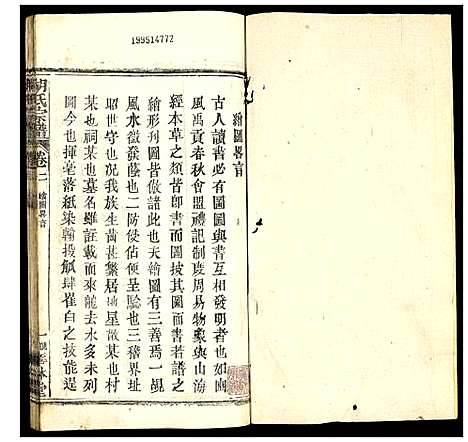 199514772
繪圖畧言
古人讀書必有圖圖與書互相發明者也如豳
風禹貢春秋會盟禮記制度周易物象與山海
經本草之類皆即書而圖披其圖而若譜之
繪形列圖皆倣諸此夫繪圖有三善焉一覘
風水徵發蔭也二防侵佔便呈驗也三稽界址
昭世守也况我族生齒甚繁居址星散某也村
某也祠某也墓名雖註載而來龍去水多未列
圖今也揮毫落紙染翰操觚肆崔白之技能逞
胡氏宗譜 卷二 繪圖畧言 一